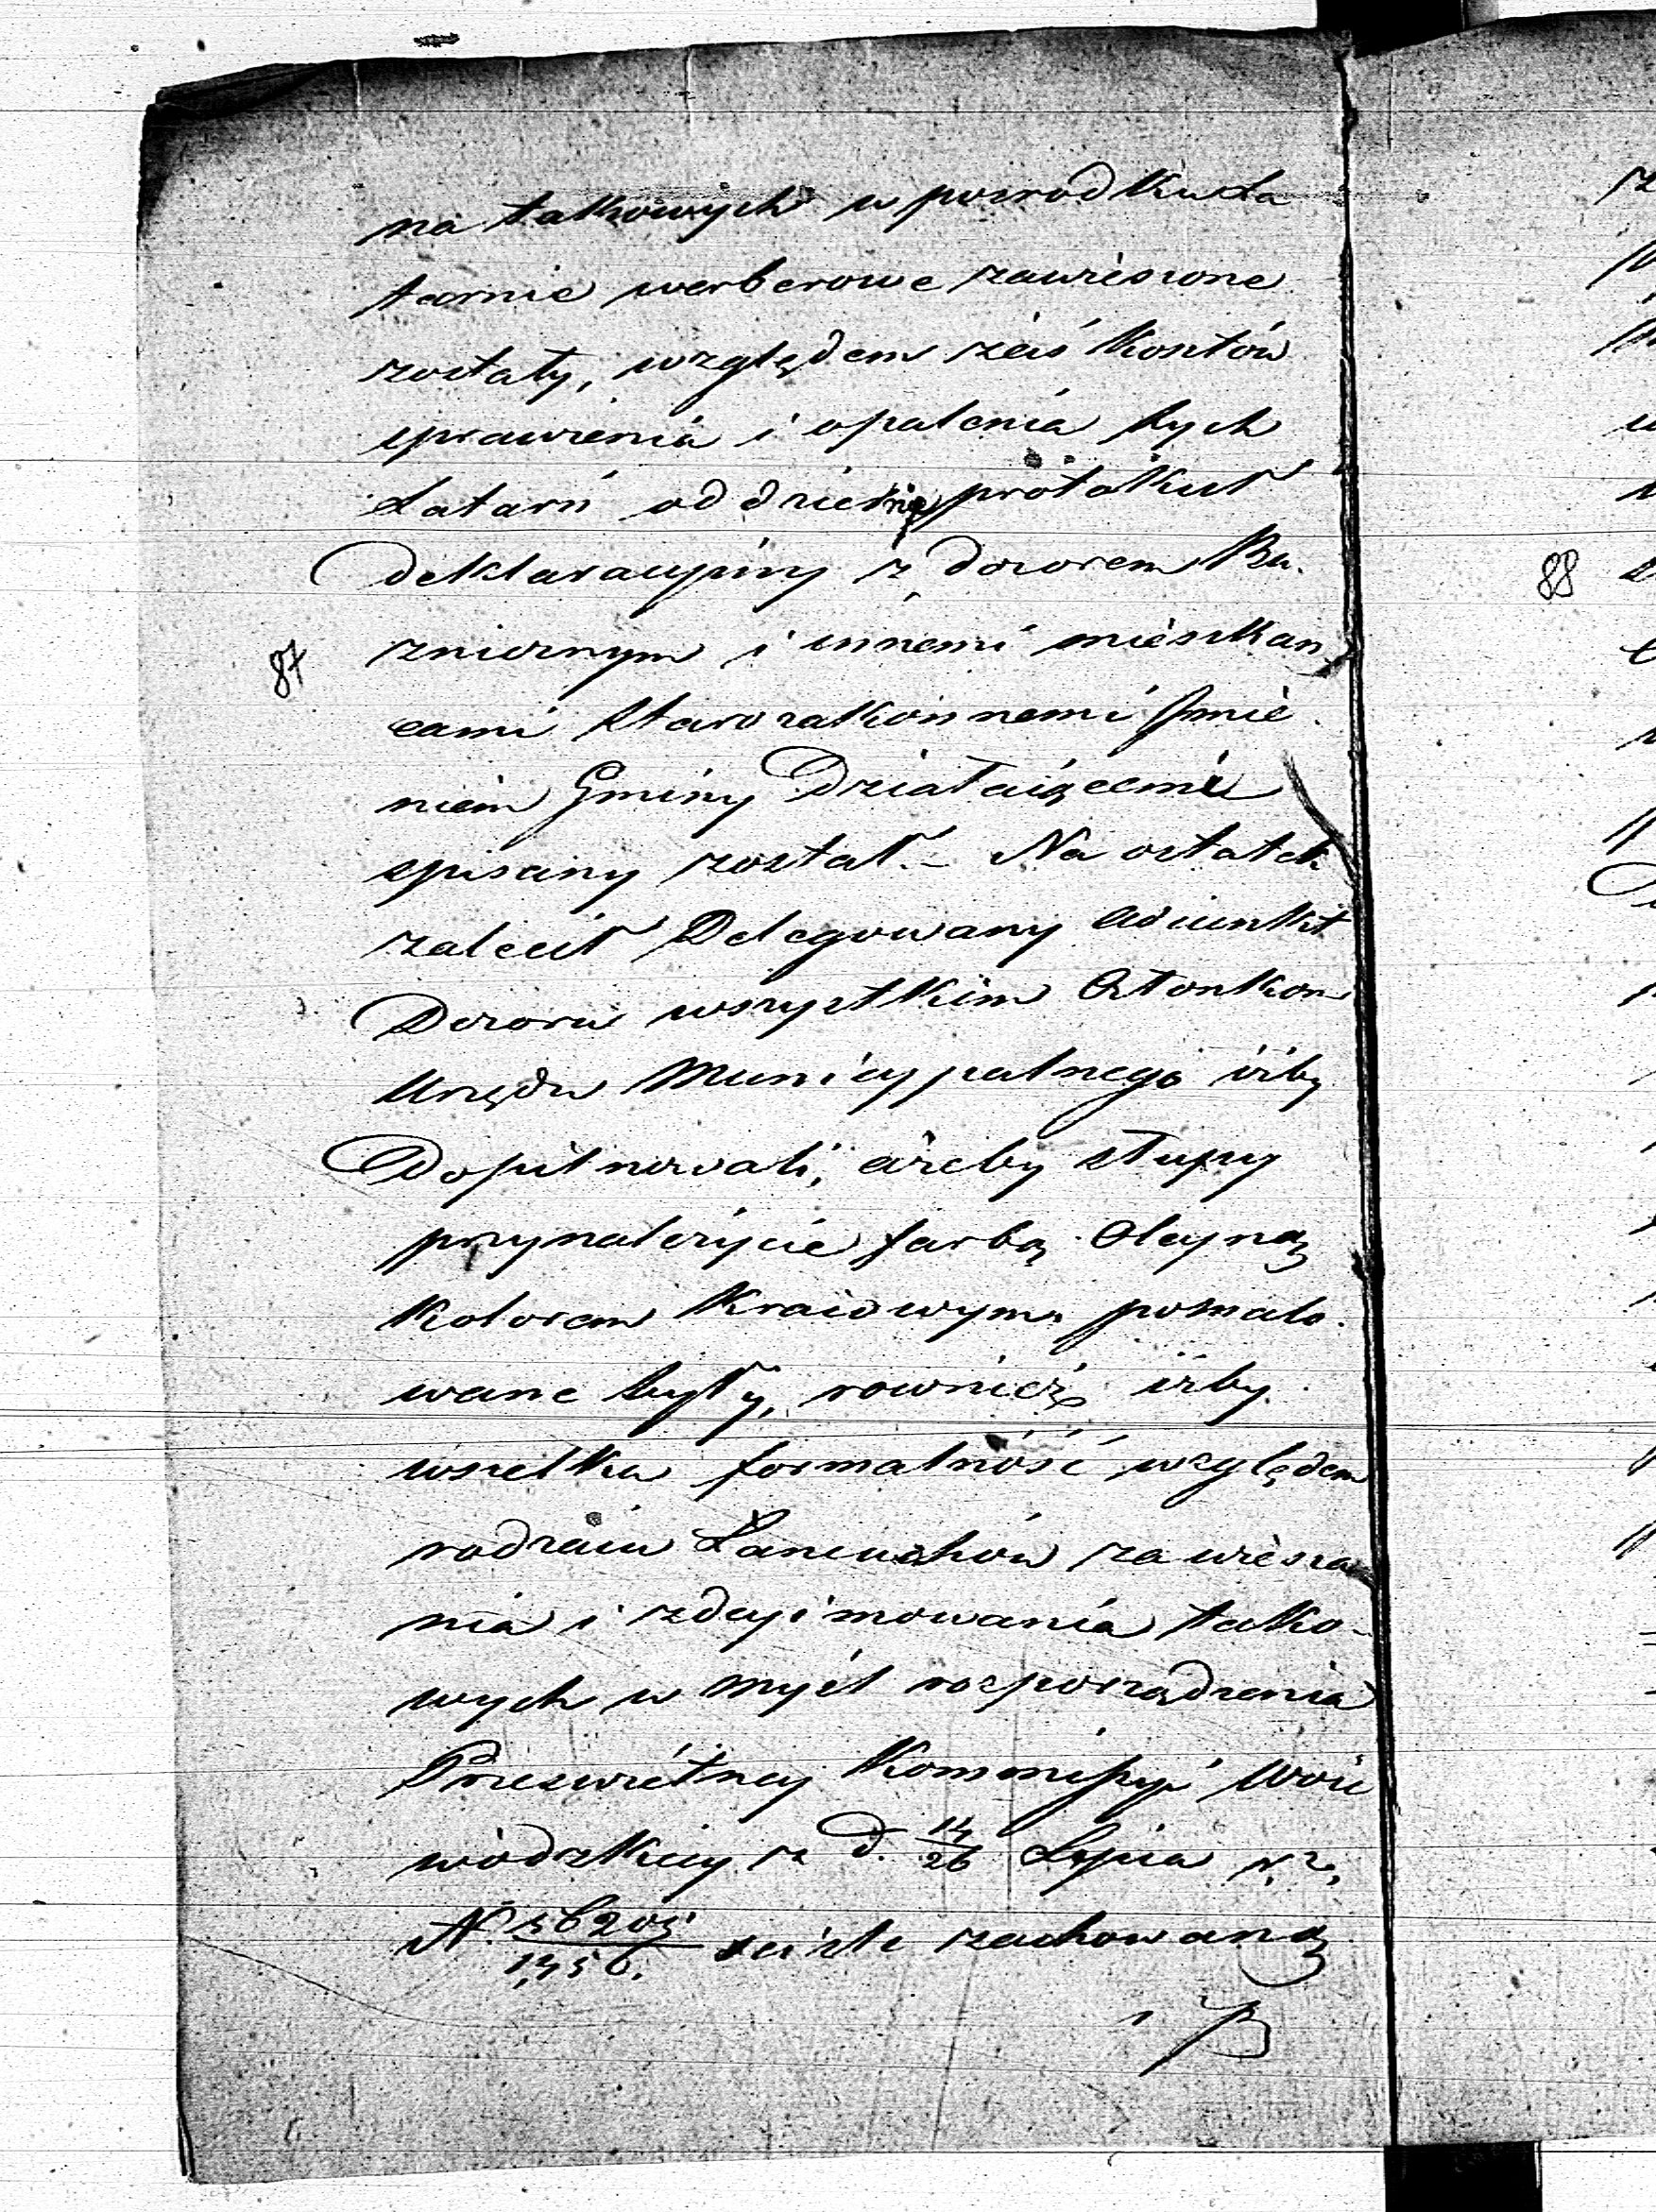 na takowych w posrodku La
tarnie werberowe zawieszone
zostały, względem zaś kosztów
sprawienia i opalenia tych
Latarń oddzielny protokuł
deklaracyiny z dozorem Bu.
znicznym i innemi mieszkan
cami Starozakonnemi Jmie
niem Gminy Działaiącemi
spisany został. – Na ostatek
zalecił Delegowany Adiunkt
Dozoru wszystkim Członkom
Urzędu Municypalnego iżby
Dopilnowali, ażeby słupy
przynależycie farbą Oleyną
Kolorem Kraiowym pomalo.
wane były, rownież iżby
wszelka formalność względem
rodzaiu Łancuchów zawiesza
nia i zdeyimowania tako-
wych w myśl rozporządzenia
Prześwietney Kommissyi Woie
wódzkiey z d. 14/26 Lipca r. b.
N 56205/1756. scisle zachowaną
87
88